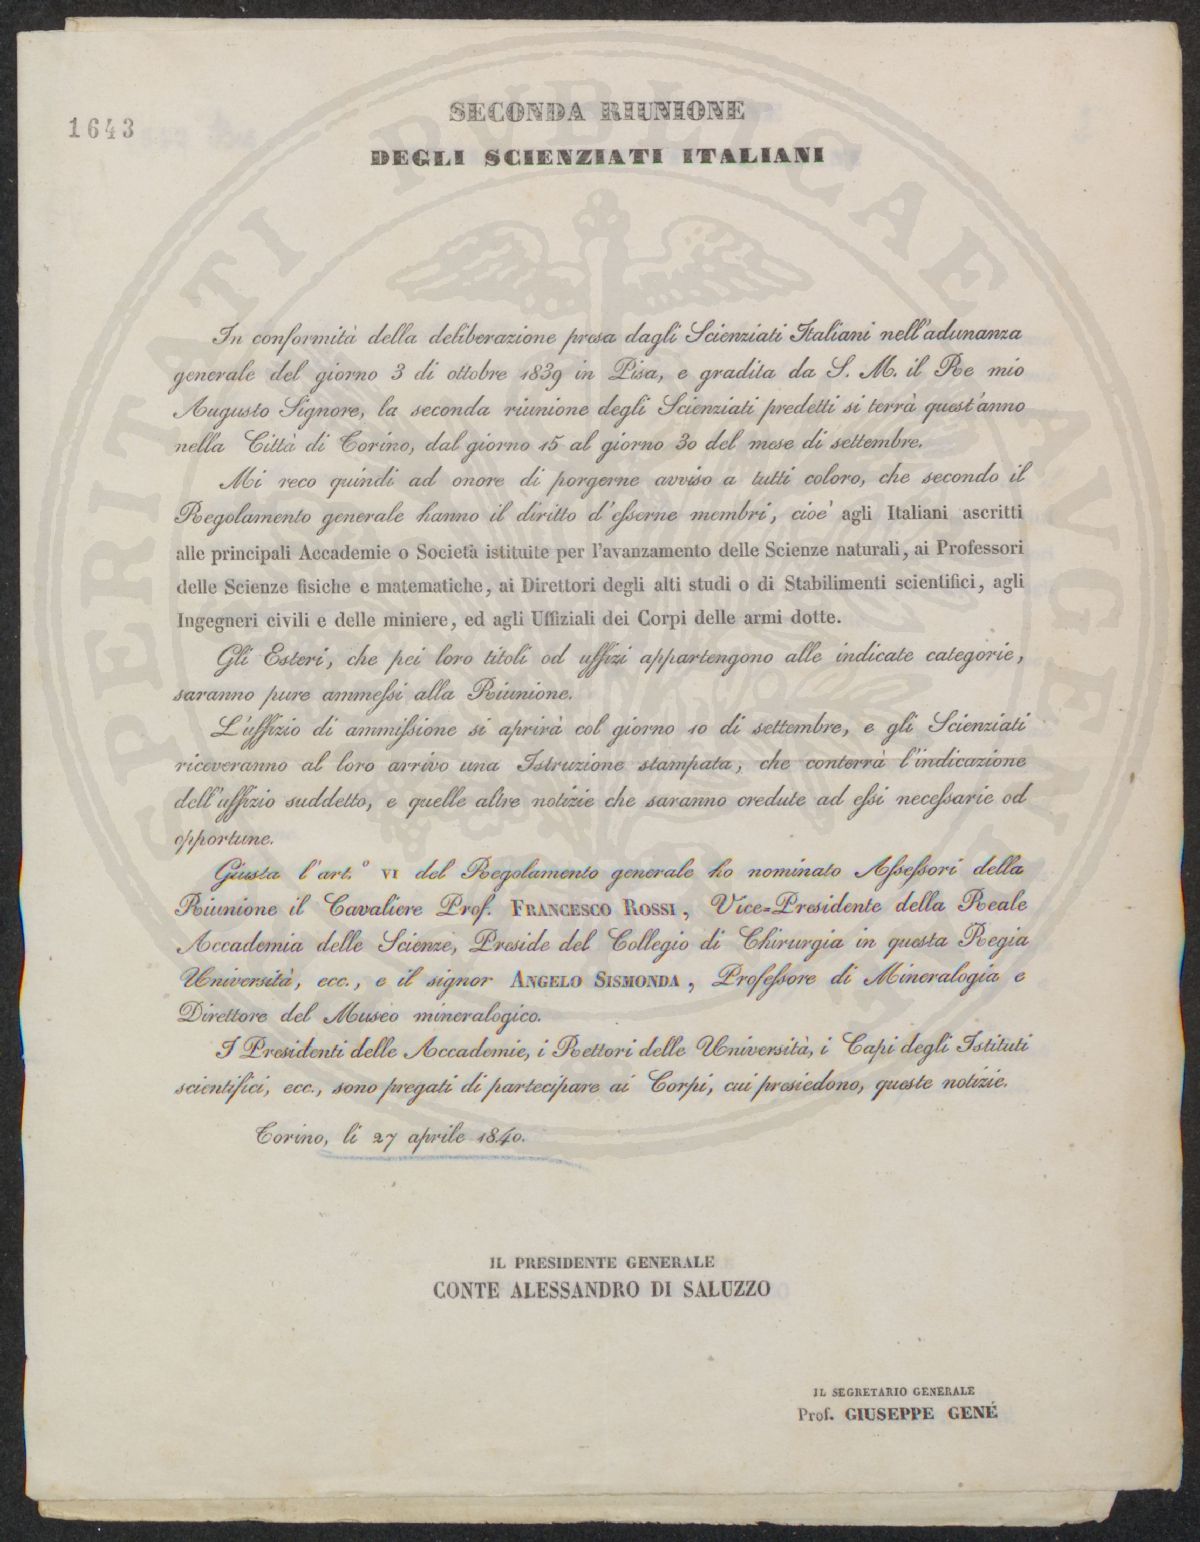 1643
SECONDA RIUNIONE
DEGLI SCIENZIATI ITALIANI
In conformità della deliberazione presa dagli Scienziati Italiani nell'adunanza
generale del giorno 3 di ottobre 1839 in Pisa, e gradita da S. M. il Re mio
Augusto Signore, la seconda riunione degli Scienziati predetti si terrà quest'anno
nella Città di Torino, dal giorno 15 al giorno 30 del mese di settembre.
Mi reco quindi ad onore di porgerne avviso a tutti coloro, che secondo il
Regolamento generale hanno il diritto d'esserne membri, cioè agli Italiani ascritti
alle principali Accademie o Società istituite per l'avanzamento delle Scienze naturali, ai Professori
delle Scienze fisiche e matematiche, ai Direttori degli alti studi o di Stabilimenti scientifici, agli
Ingegneri civili e delle miniere, ed agli Uffiziali dei Corpi delle armi dotte.
Gli Esteri, che pei loro titoli od uffizi appartengono alle indicate categorie,
saranno pure ammessi alla Riunione.
L'uffizio di ammissione si aprirà col giorno 10 di settembre, e gli Scienziati
riceveranno al loro arrivo una Istruzione stampata, che conterrà l'indicazione
dell'uffizio suddetto, e quelle altre notizie che saranno credute ad essi necessarie od
opportune.
Giusta l'art.° VI del Regolamento generale ho nominato Assessori della
Riunione il Cavaliere Prof. FRANCESCO ROSSI, Vice=Presidente della Reale
Accademia delle Scienze, Preside del Collegio di Chirurgia in questa Regia
Università, ecc., e il signor ANGELO SISMONDA, Professore di Mineralogia e
Direttore del Museo mineralogico.
I Presidenti delle Accademie, i Rettori delle Università, i Capi degli Istituti
scientifici, ecc., sono pregati di partecipare ai Corpi, cui presiedono, queste notizie.
Torino, li 27 aprile 1840.
IL PRESIDENTE GENERALE
CONTE ALESSANDRO DI SALUZZO
IL SEGRETARIO GENERALE
Prof. GIUSEPPE GENÉ